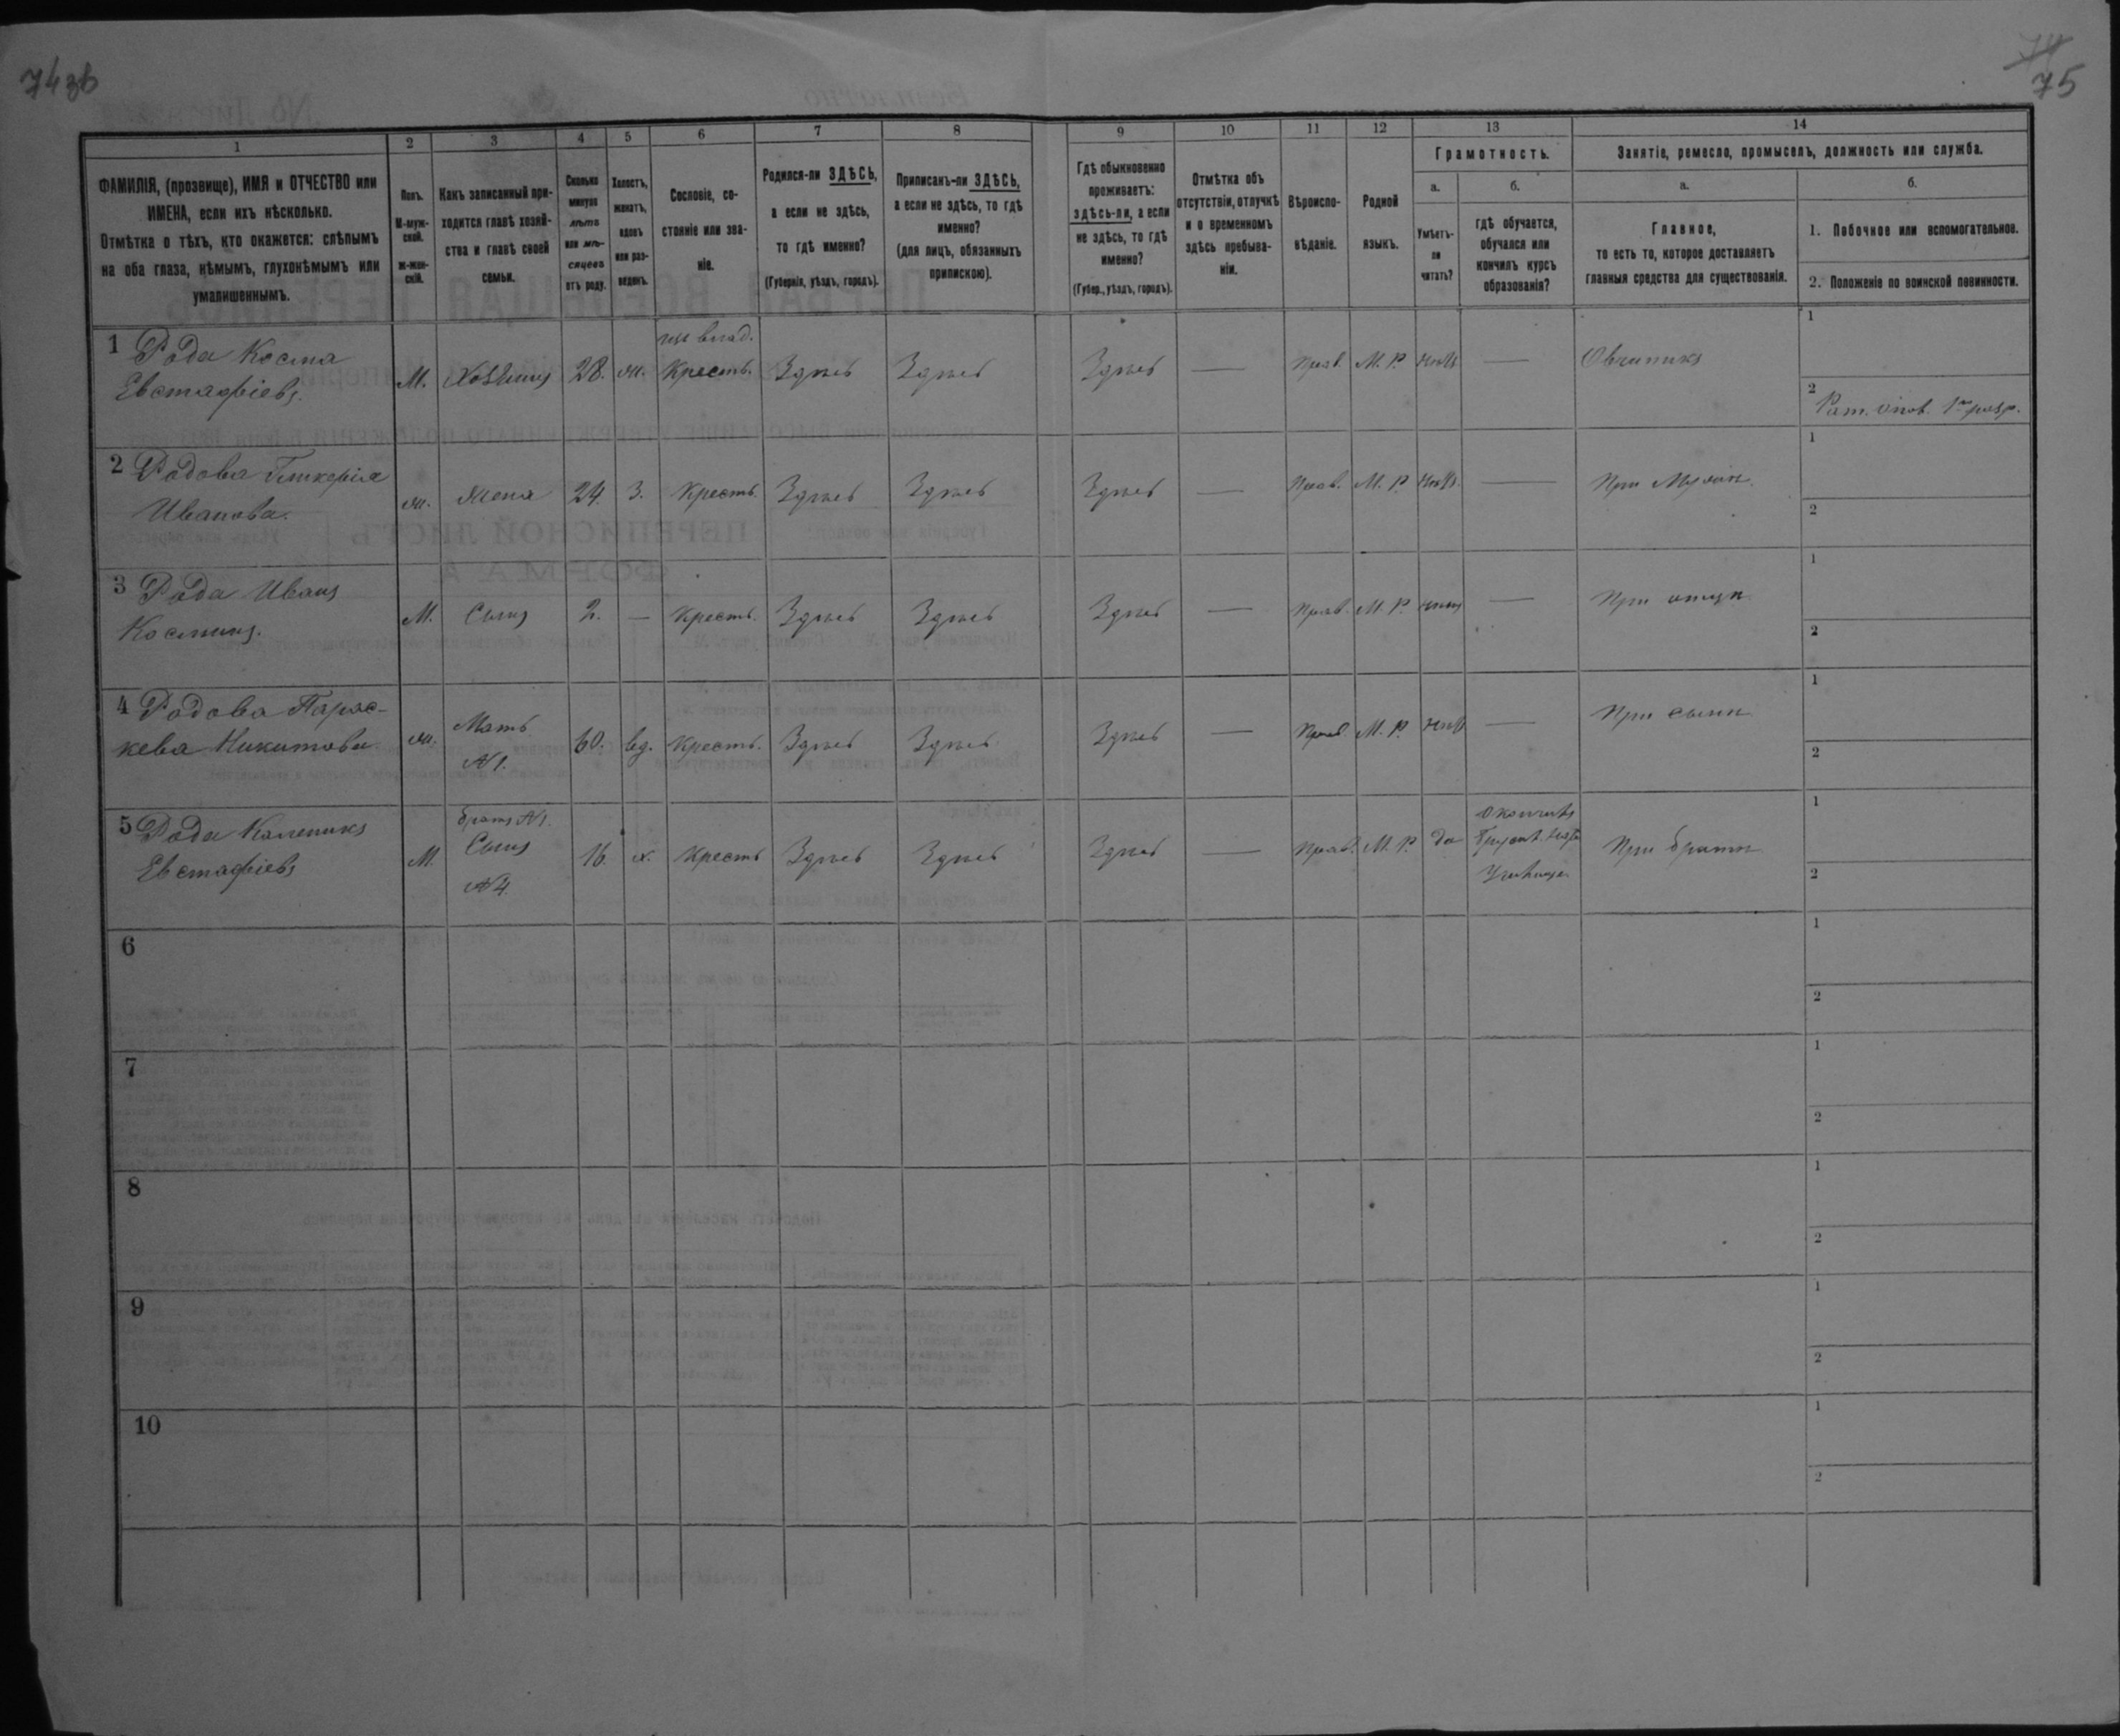 74 об
74
75
1 2 3 4 5 6 7 8 9 10 11 12 13 14
ФАМИЛІЯ, (прозвище), ИМЯ и ОТЧЕСТВО или
ИМЕНА, если ихъ нѣсколько.
Отмѣтка о тѣхъ, кто окажется: слѣпымъ
на оба глаза, нѣмымъ, глухонѣмымъ или
умалишеннымъ.
Полъ.
М-муж-
ской.
ж-жен-
скій.
Какъ записанный при-
ходится главѣ хозяй-
ства и главѣ своей
семьи.
Сколько
минуло
лѣтъ
или мѣ-
сяцевъ
отъ роду.
Холостъ,
женатъ,
вдовъ
или раз-
веденъ.
Сословіе, со-
стояніе или зва-
ніе.
Родился-ли ЗДѢСЬ,
а если не здѣсь,
то гдѣ именно?
(Губернія, уѣздъ, городъ).
Приписанъ-ли ЗДѢСЬ,
а если не здѣсь, то гдѣ
именно?
(для лицъ, обязанныхъ
припискою).
Гдѣ обыкновенно
проживаетъ:
здѣсь-ли, а если
не здѣсь, то гдѣ
именно?
(Губер., уѣздъ, городъ).
Отмѣтка объ
отсутствіи, отлучкѣ
и о временномъ
здѣсь пребыва-
ніи.
Вѣроиспо-
вѣданіе.
Родной
языкъ.
Грамотность.
а.
Умѣетъ-
ли
читать?
б.
гдѣ обучается,
обучался или
кончилъ курсъ
образованія?
Занятіе, ремесло, промыселъ, должность или служба.
а.
Главное,
то есть то, которое доставляетъ
главныя средства для существованія.
б.
1. Побочное или вспомогательное.
2. Положеніе по воинской повинности.
1 Рода Косма
Евстафіевъ.
М. Хозяинъ 28. ж.
влад.
Крестъ. Здѣсь Здѣсь Здѣсь — Прав. М. Р. нѣтъ — Овчинникъ
1
2 Рат. опол. 1го разр.
2 Родова Гликерія
Иванова.
ж. Жена 24. з. Крестъ. Здѣсь Здѣсь Здѣсь — Прав. М. Р. нѣтъ — При мужѣ
1
2
3 Рода Иванъ
Косминъ.
М. Сынъ 2. — Крестъ. Здѣсь Здѣсь Здѣсь — Прав. М. Р. нѣтъ — При отцѣ
1
2
4 Родова Парас-
кева Никитова
ж. Мать
N 1.
60. вд. Крестъ. Здѣсь Здѣсь Здѣсь — Прав. М. Р. нѣтъ — При сынѣ
1
2
5 Рода Каленикъ
Евстафіевъ
М.
братъ N 1.
Сынъ
N 4.
16. х. Крестъ Здѣсь Здѣсь Здѣсь — Прав. М. Р. да
Окончилъ
Училище
При братѣ
1
2
6
1
2
7
1
2
8
1
2
9
1
2
10
1
2